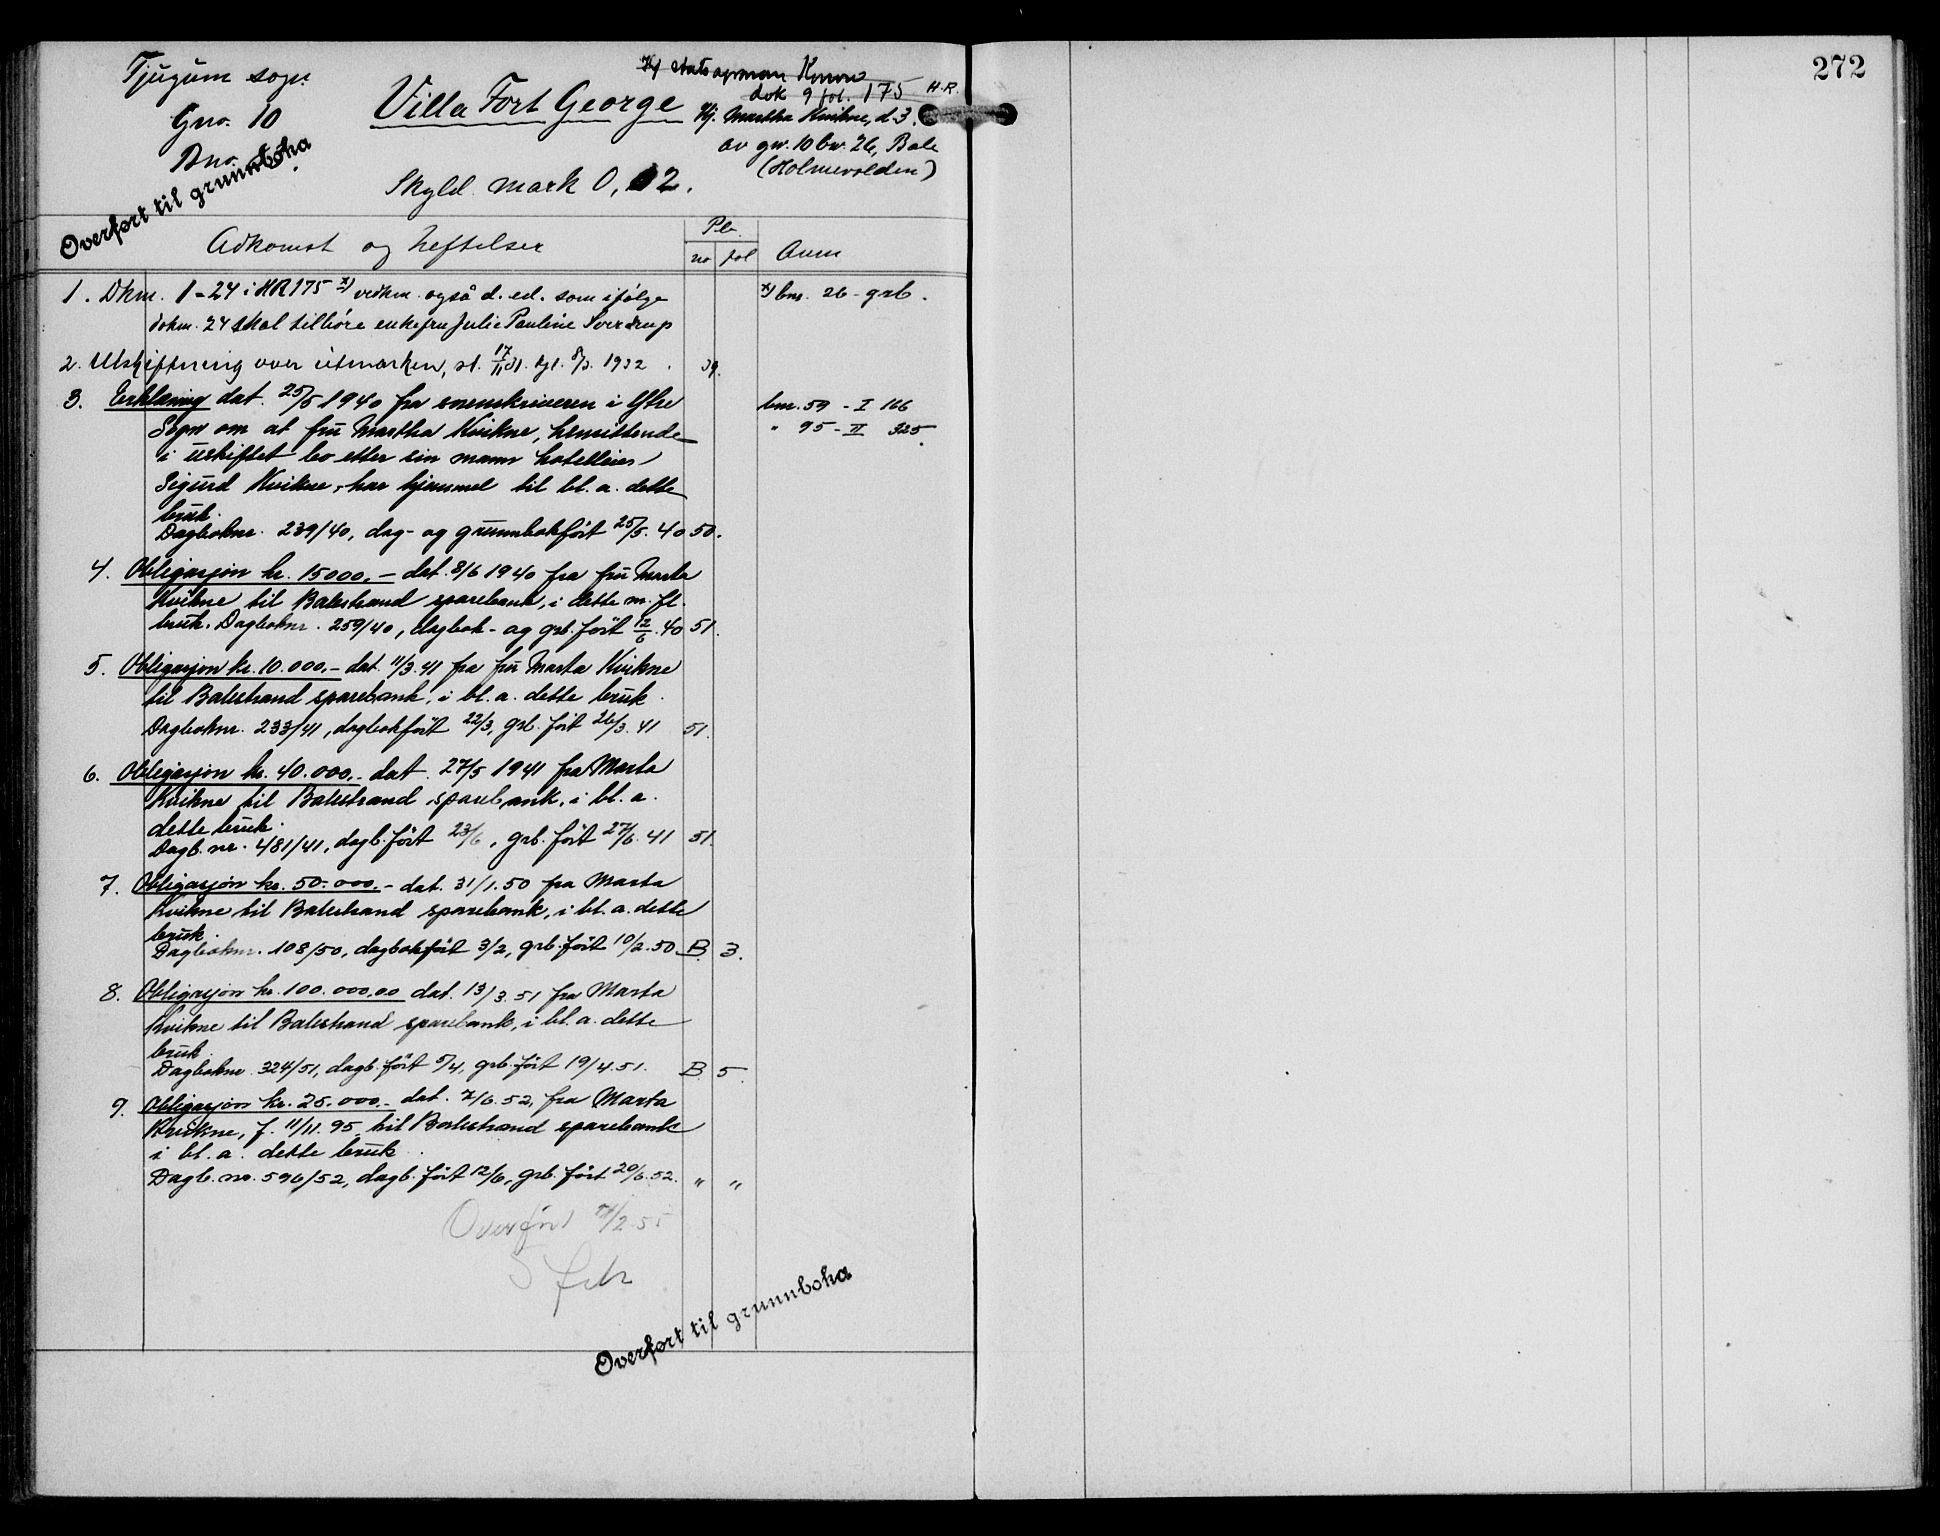 272
Tjugum sogn
Gno. 10
Bno.
Overført til grunnboka
Villa Fort George
Skyld mark 0,02.
dok 9 fol. 175 H.R.
Hj. Martha Kvikne, d. 3.
av gnr. 10 bnr. 26, Bale
(Holmevolden)
Adkomst og heftelser
Pb.
no fol
Anm
1. Dkm. 1-24 i HR 175 x) vedkm. også d. ed. som ifølge
dokm. 24 skal tilhøre enkefru Julie Pauline Sverdrup
x) bnr. 26 - grb.
2. Utskiftning over utmarken, st. 17/11 31. tgl. 1932. 39.
3. Erklæring dat. 25/5 1940 fra sorenskriveren i Ytre
Sogn om at fru Martha Kvikne, hensittende
i uskiftet bo etter sin mann hotelleier
Sigurd Kvikne, har hjemmel til bl. a. dette
bruk.
Dagboknr. 239/40, dag- og grunnbokført 25/5. 40 50.
bnr. 59 - I 166
" 95 - II 325.
4. Obligasjon kr. 15000.- dat. 8/6 1940 fra fru Marta
Kvikne til Balestrand sparebank, i dette m. fl.
bruk. Dagboknr. 259/40, dagbok- og grb. ført 12/6. 40 51.
5. Obligasjon kr. 10.000.- dat. 11/3. 41 fra fru Marta Kvikne
til Balestrand sparebank, i bl. a. dette bruk.
Dagboknr. 233/41, dagbokført 22/3, grb. ført 26/3. 41 51.
6. Obligasjon kr. 40.000.- dat. 27/5 1941 fra Marta
Kvikne til Balestrand sparebank, i bl. a.
dette bruk.
Dagb. nr. 481/41, dagb. ført 23/6, grb. ført 27/6. 41 51.
7. Obligasjon kr. 50.000.- dat. 31/1. 50 fra Marta
Kvikne til Balestrand sparebank, i bl. a. dette
bruk.
Dagboknr. 108/50, dagbokført 3/2, grb. ført 10/2. 50 B. 3.
8. Obligasjon kr. 100.000,00 dat. 13/3. 51 fra Marta
Kvikne til Balestrand sparebank, i bl. a. dette
bruk.
Dagboknr. 324/51, dagb. ført 5/4, grb. ført 19/4. 51. B 5.
9. Obligasjon kr. 25.000.- dat. 7/6. 52, fra Marta
Kvikne, f. 11/11. 95 til Balestrand sparebank
i bl. a. dette bruk.
Dagb. nr. 596/52, dagb. ført 12/6, grb. ført 20/6. 52. " "
Overført /2 55
Overført til grunnboka